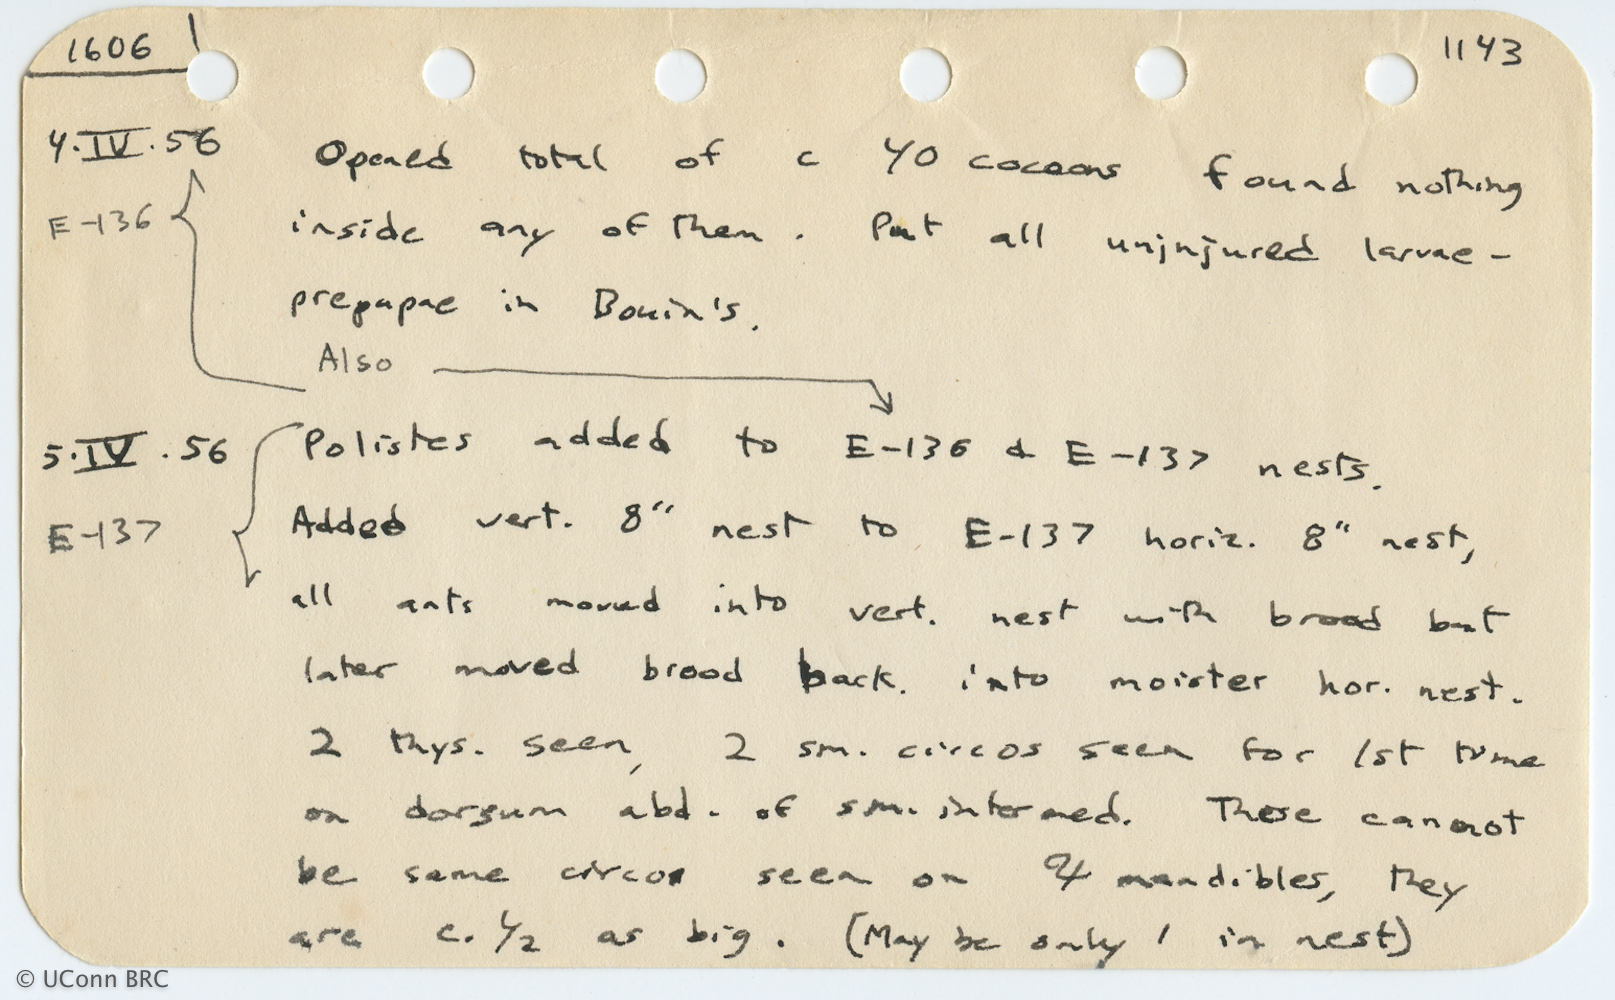 1606
1143
4.IV.56 Opened total of c 40 cocoons found nothing
E-136 inside any of them. Put all uninjured larvae-
prepupae in Bouin's.
Also
5.IV.56 Polistes added to E-136 & E-137 nests.
E-137 Added vert. 8" nest to E-137 horiz. 8" nest,
all ants moved into vert. nest with brood but
later moved brood back. into moister hor. nest.
2 thys. seen, 2 sm. circos seen for 1st time
on dorsum abd. of sm. intermed. These cannot
be same circos seen on ♃ mandibles, they
are c. 1/2 as big. (May be only 1 in nest)
© UConn BRC